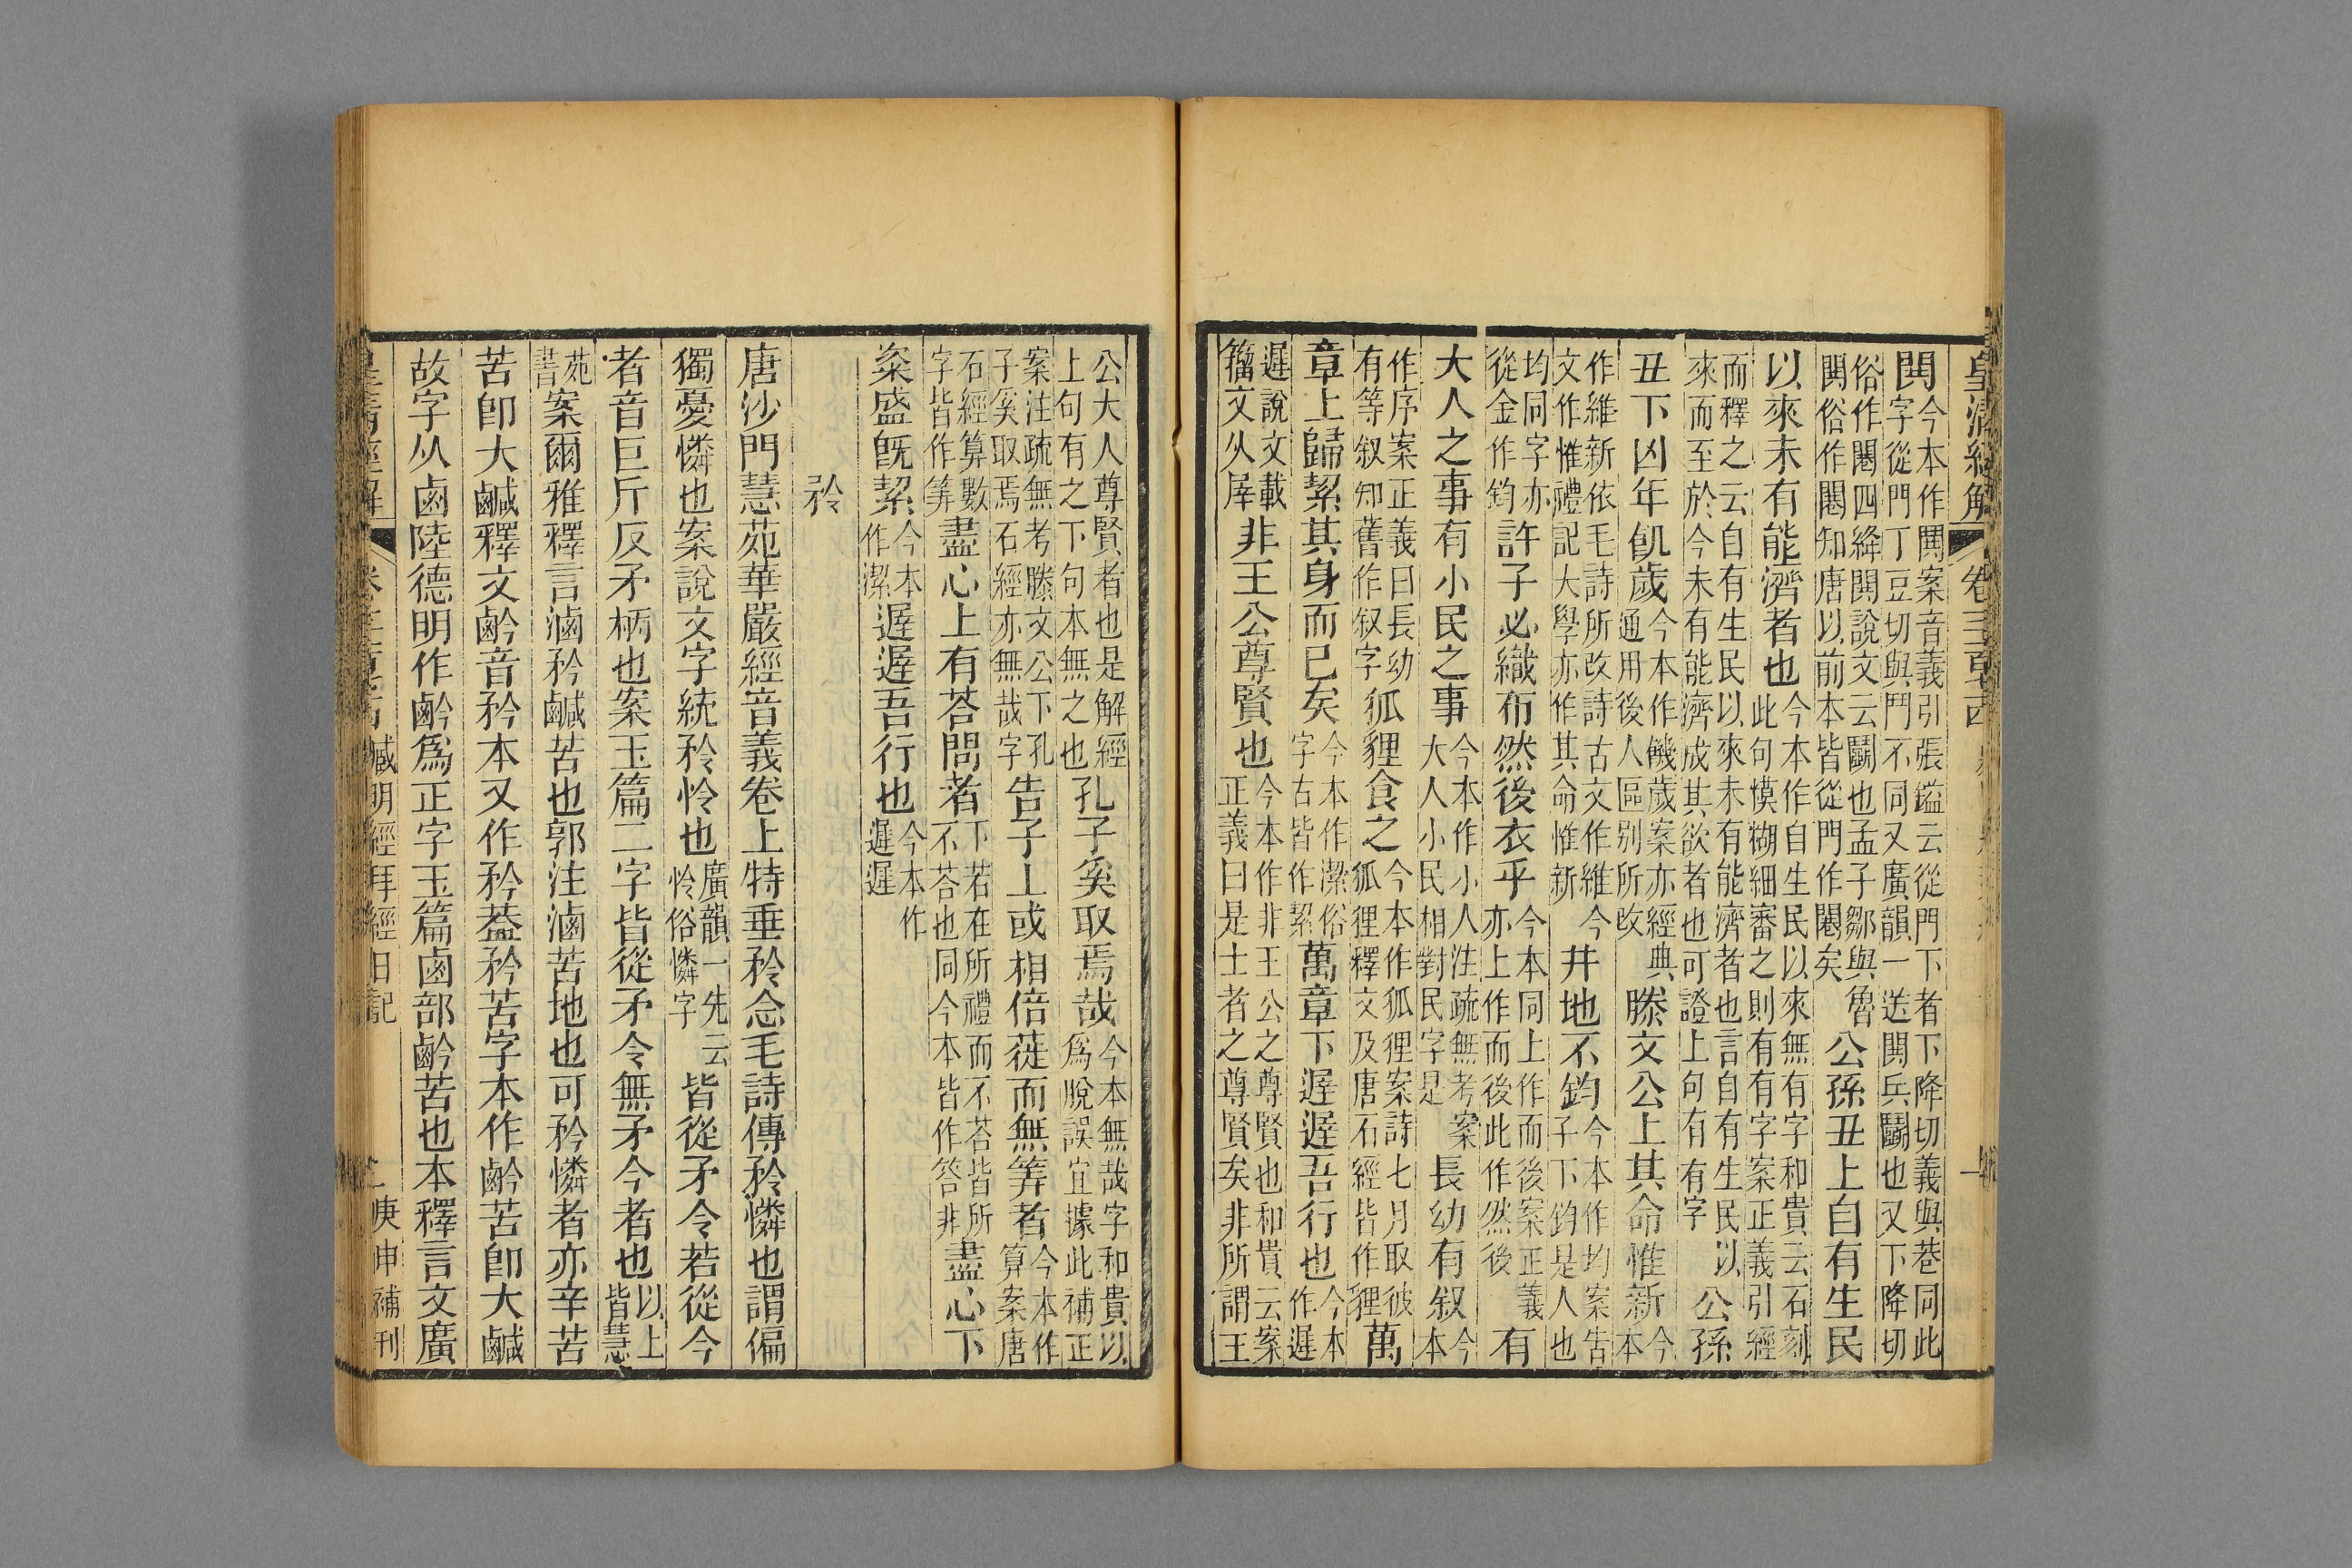 皇清經解 卷
鬨今本作鬨案音義引張鎰云從門下者下降切義與巷同此字從門丁豆切與鬥不同又廣韻一送鬨兵鬬也又下降切
俗作閧四絳鬨說文云鬬也孟子鄒與魯鬨俗作閧知唐以前本皆從門作閧矣公孫丑上自有生民
以來未有能濟者也今本作自生民以來無有字和貴云石刻此句模糊細審之則有有字案正義引經
而釋之云自有生民以來未有能濟者也言自有生民以來而至於今未有能濟成其欲者也可證上句有有字公孫
丑下凶年飢歲今本作饑歲案亦經典通用後人區别所改滕文公上其命惟新今本
作維新依毛詩所改詩古文作維今文作惟禮記大學亦作其命惟新井地不鈞今本作均案告子下鈞是人也
均同字亦從金作鈞許子必織布然後衣乎今本同上作而後案正義亦上作而後此作然後有
大人之事有小民之事今本作小人注疏無考案大人小民相對民字是長幼有叙今本
作序案正義曰長幼有等叙知舊作叙字狐貍食之今本作狐狸案詩七月取彼狐狸釋文及唐石經皆作貍萬
章上歸絜其身而已矣今本作潔俗字古皆作絜萬章下遟遟吾行也今本作遲
遲說文載籀文从屖非王公尊賢也今本作非王公之尊賢也和貴云案正義曰是士者之尊賢矣非所謂王
公大人尊賢者也是解經上句有之下句本無之也孔子奚取焉哉今本無哉字和貴以爲脫誤宜據此補正
案注疏無考滕文公下孔子奚取焉石經亦無哉字告子上或相倍蓰而無筭者今本作算案唐
石經算數字皆作筭盡心上有荅問者下若在所禮而不荅皆所不荅也同今本皆作答非盡心下
粢盛旣絜今本作潔遟遟吾行也今本作遲遲
矝
唐沙門慧苑華嚴經音義卷上特垂矝念毛詩傳矝憐也謂偏
獨憂憐也案說文字統矝怜也廣韻一先云怜俗憐字皆從矛令若從今
者音巨斤反矛柄也案玉篇二字皆從矛令無矛今者也以上皆慧
苑書案爾雅釋言滷矜鹹苦也郭注滷苦地也可矜憐者亦辛苦
苦卽大鹹釋文䶖音矜本又作矜葢矜苦字本作䶖苦卽大鹹
故字从鹵陸德明作䶖爲正字玉篇鹵部䶖苦也本釋言文廣
皇清經解 卷 臧明經拜經日記 二 庚申補刊